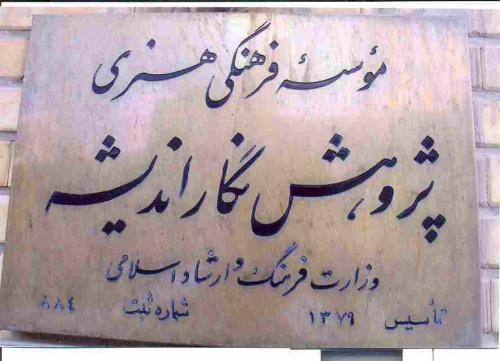 مؤسسهٔ فرهنگی هنری
پژوهش نگار اندیشه
وزارت فرهنگ و ارشاد اسلامی
تأسیس ۱۳۷۹ شماره ثبت ۸۸۴